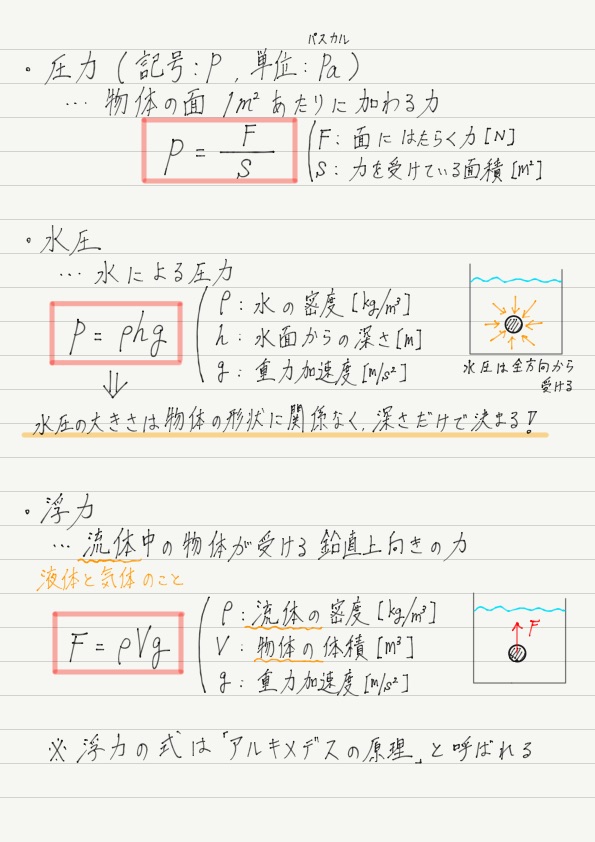 パスカル
・圧力 (記号: P, 単位: Pa)
… 物体の面 1m² あたりに加わる力
P = F/S
F: 面にはたらく力 [N]
S: 力を受けている面積 [m²]
・水圧
… 水による圧力
P = ρhg
ρ: 水の密度 [kg/m³]
h: 水面からの深さ [m]
g: 重力加速度 [m/s²]
水圧は全方向から
受ける
⇓
水圧の大きさは物体の形状に関係なく, 深さだけで決まる!
・浮力
… 流体中の物体が受ける鉛直上向きの力
液体と気体のこと
F = ρVg
ρ: 流体の密度 [kg/m³]
V: 物体の体積 [m³]
g: 重力加速度 [m/s²]
F
※ 浮力の式は「アルキメデスの原理」と呼ばれる